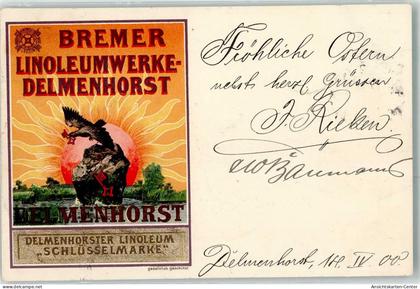 BREMER
LINOLEUMWERKE-
DELMENHORST
DELMENHORST
DELMENHORSTER LINOLEUM
„SCHLÜSSELMARKE"
gesetzlich geschützt
Fröhliche Ostern
nebst herzl. Grüssen
J. Rieken
Baumann
Delmenhorst, 14. IV 00
Ansichtskarten-Center